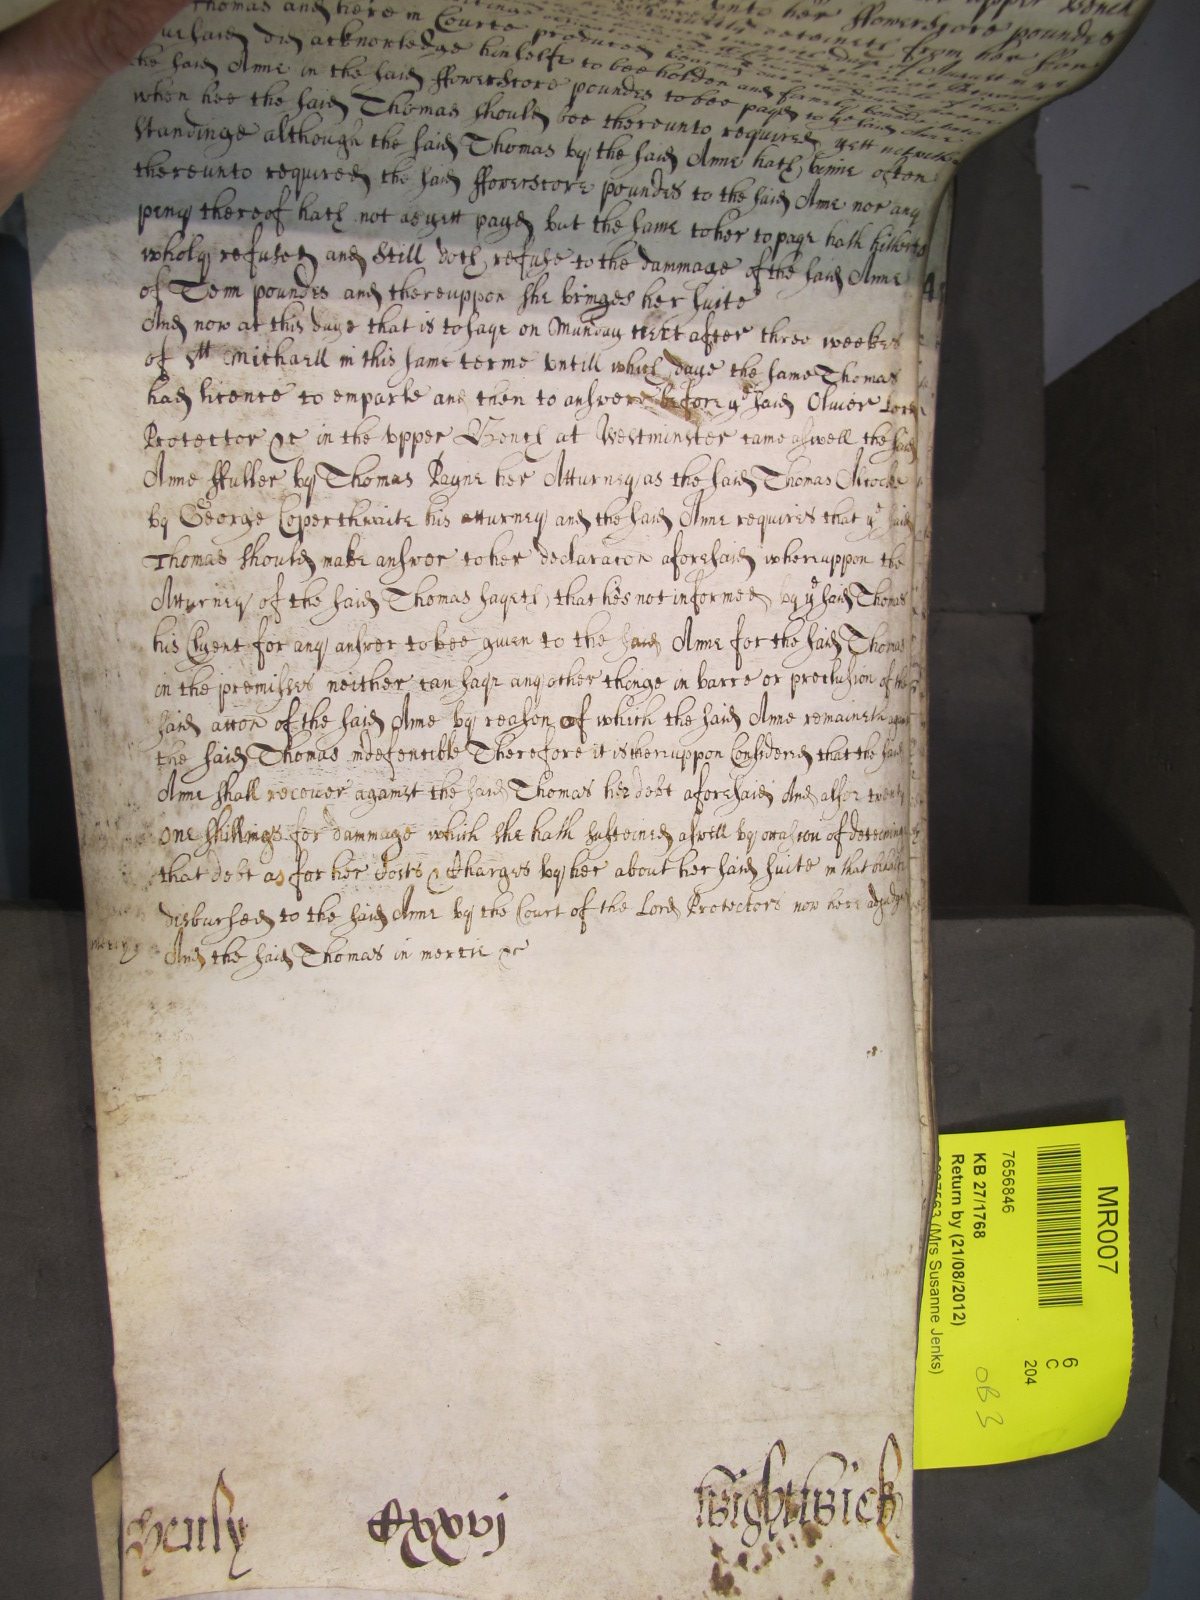 upper Bench
unto her ffowerscore poundes
Thomas and here in Courte produced
did acknowledge himselfe to bee holden and firmely bound unto
the said Anne in the said ffowerscore poundes to bee payd to ye said Anne
when hee the said Thomas should bee thereunto required yett notwith
standinge although the said Thomas by the said Anne hath binne often
thereunto required the said ffowerscore poundes to the said Anne nor any
peny thereof hath not as yett payd but the same to her to paye hath hitherto
wholy refused and still doth refuse to the dammage of the said Anne
of Tenn poundes and thereuppon she bringes her suite
And now at this daye that is to saye on Munday next after three weekes
of st Michaell in this same terme untill which daye the same Thomas
had licence to emparle and then to answere before ye said Oliver Lord
Protector &c in the upper Bench at Westminster came aswell the said
Anne ffuller by Thomas Payne her Atturney as the said Thomas Alcocke
by George Coperthwaite his atturney and the said Anne requires that ye said
Thomas should make answer to her declaracon aforesaid whereuppon the
Atturney of the said Thomas sayeth that hees not informed by ye said Thomas
his Clyent for any answer to bee given to the said Anne for the said Thomas
in the premisses neither can saye any other thinge in barre or preclusion of the
said accon of the said Anne by reason of which the said Anne remaineth against
the said Thomas indefencible Therefore it is thereuppon Considered that the said
Anne shall recover against the said Thomas her debt aforesaid And alsoe twenty
one shillings for dammage which she hath susteined aswell by occasion of deteining
that debt as for her Costs & Charges by her about her said suite in that behalfe
disbursed to the said Anne by the Court of the Lord Protectors now here adjudged
mercy
And the said Thomas in mercie &c
Henly
Cxxvj
Wightwick
MR007
7656846
KB 27/1768
Return by (21/08/2012)
(Mrs Susanne Jenks)
6
C
204
OB 3